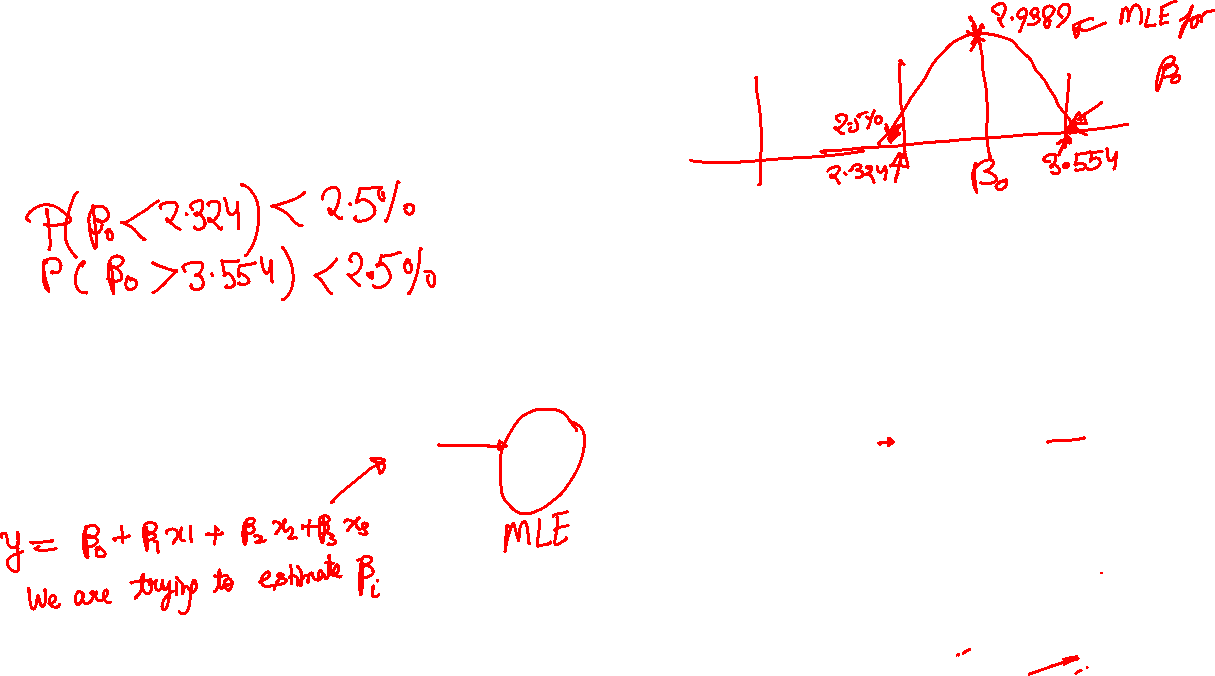 2.9389 ← MLE for
β₀
2.5%
2.324
β₀
3.554
P(β₀ < 2.324) < 2.5%
P(β₀ > 3.554) < 2.5%
MLE
y = β₀ + β₁x1 + β₂x₂ + β₃x₃
We are trying to estimate βᵢ